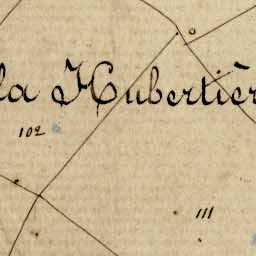 la Hubertièr
102
111